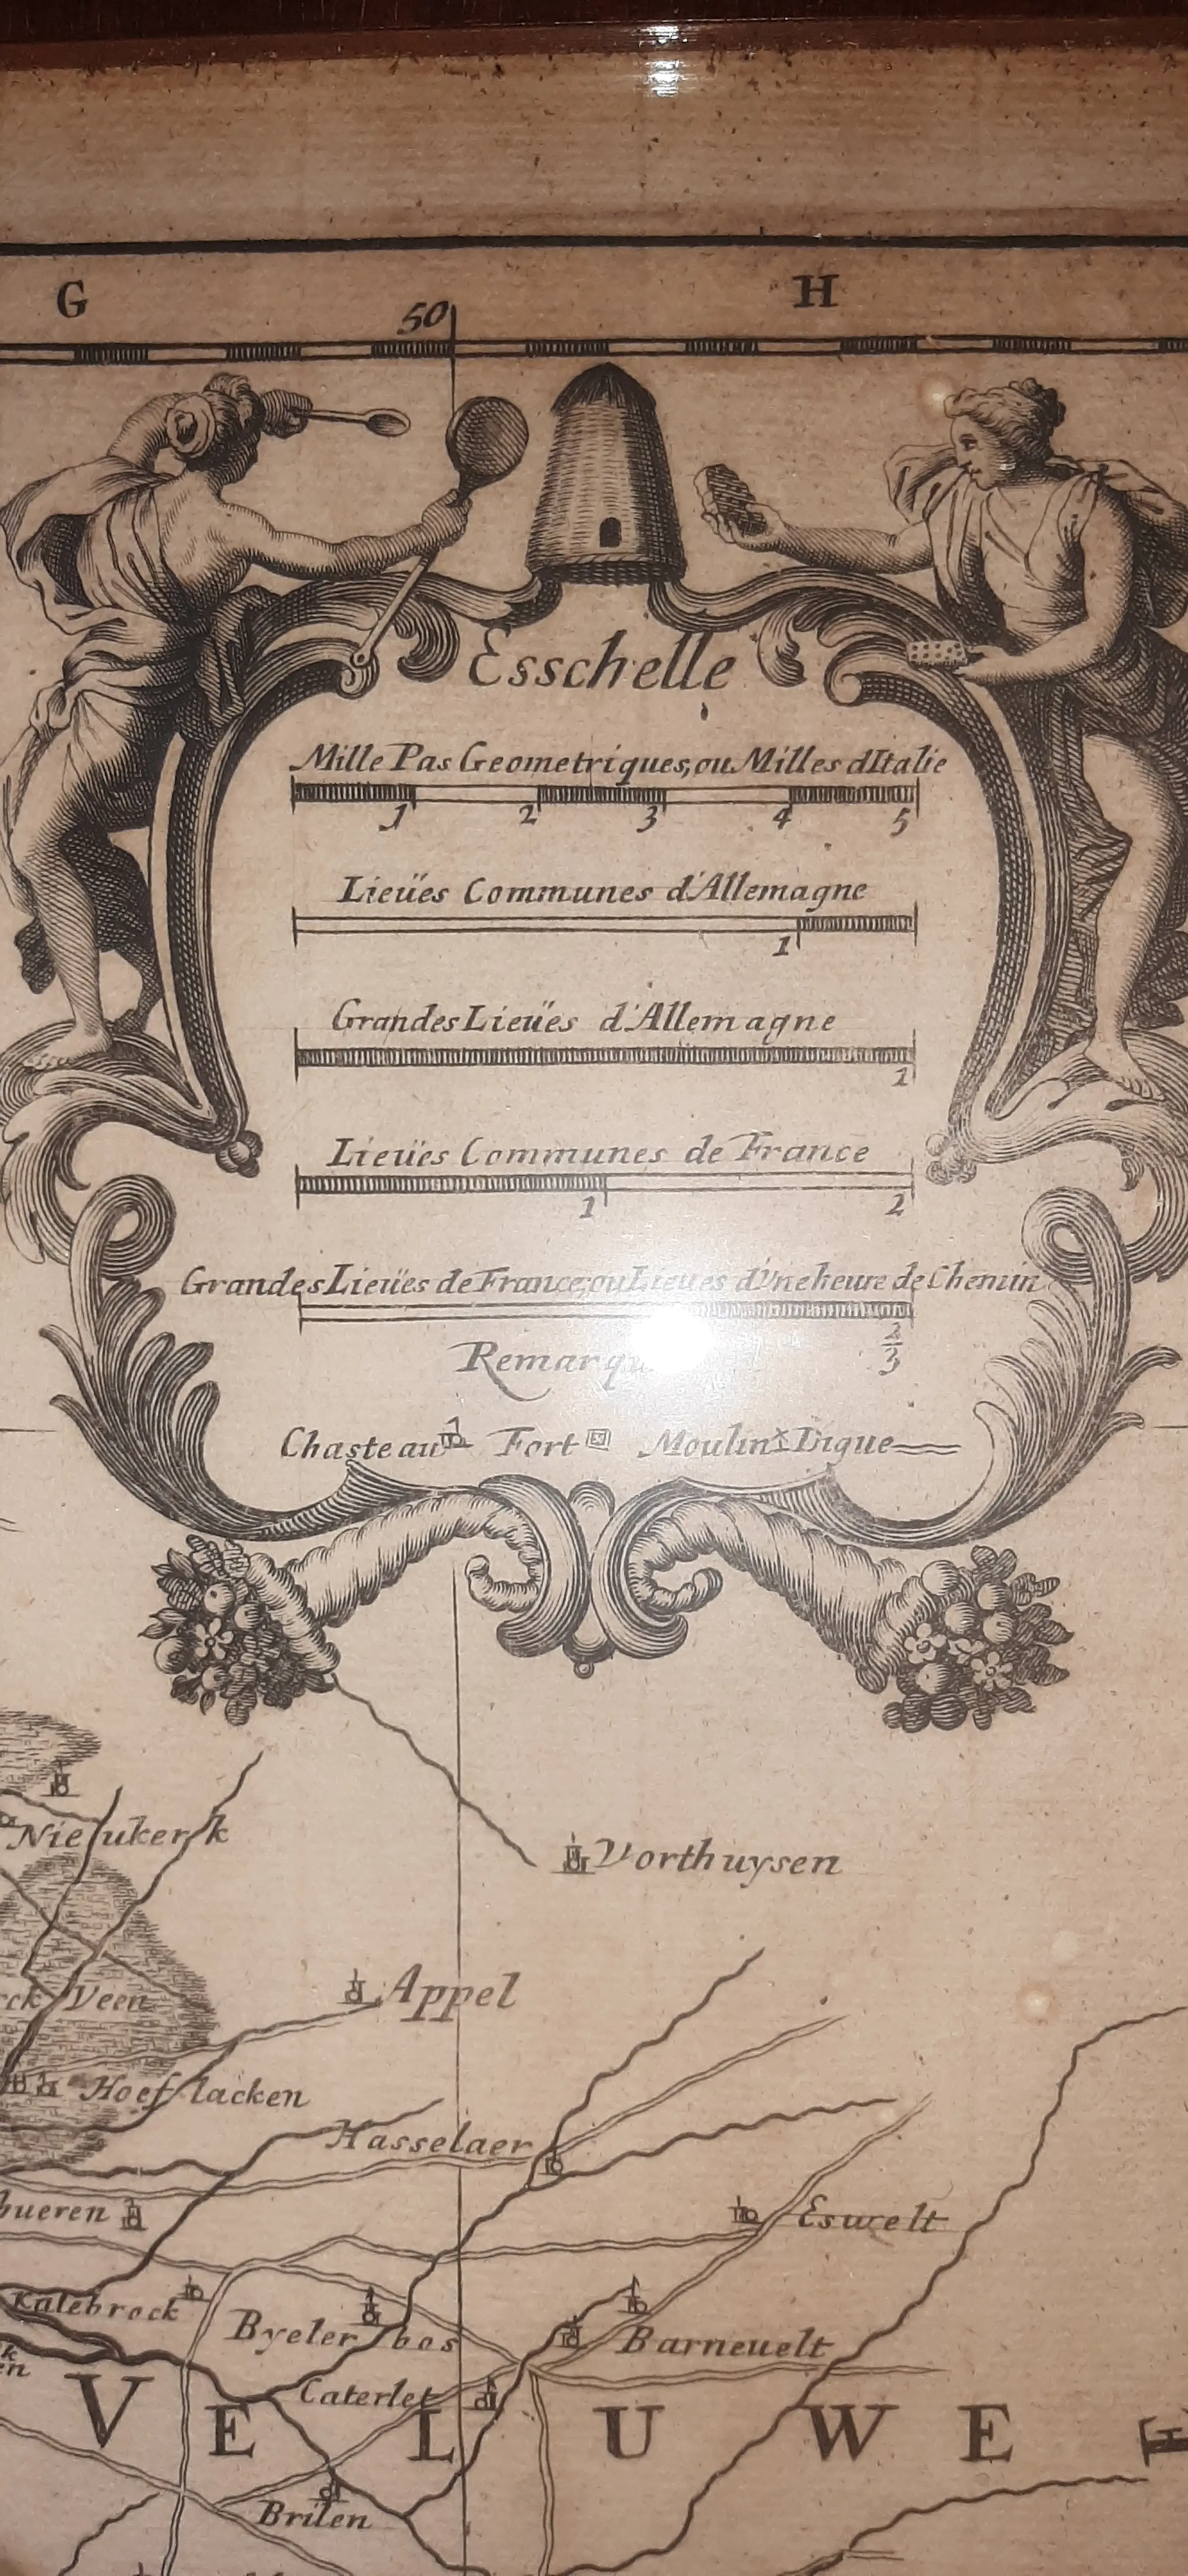 G
H
50
Esschelle
Mille Pas Geometriques, ou Milles dItalie
1 2 3 4 5
Lieües Communes d'Allemagne
1
Grandes Lieües d'Allemagne
1
Lieües Communes de France
1 2
Grandes Lieües de France, ou Lieues d'Vne heure de Chemin
2/3
Chasteau Fort Moulin Digue
Nieukerk
Vorthuysen
Appel
Veen
Hoeflacken
Hasselaer
Eswelt
Kalebrock
Byeler bos
Barneuelt
Caterlet
VELUWE
Brilen